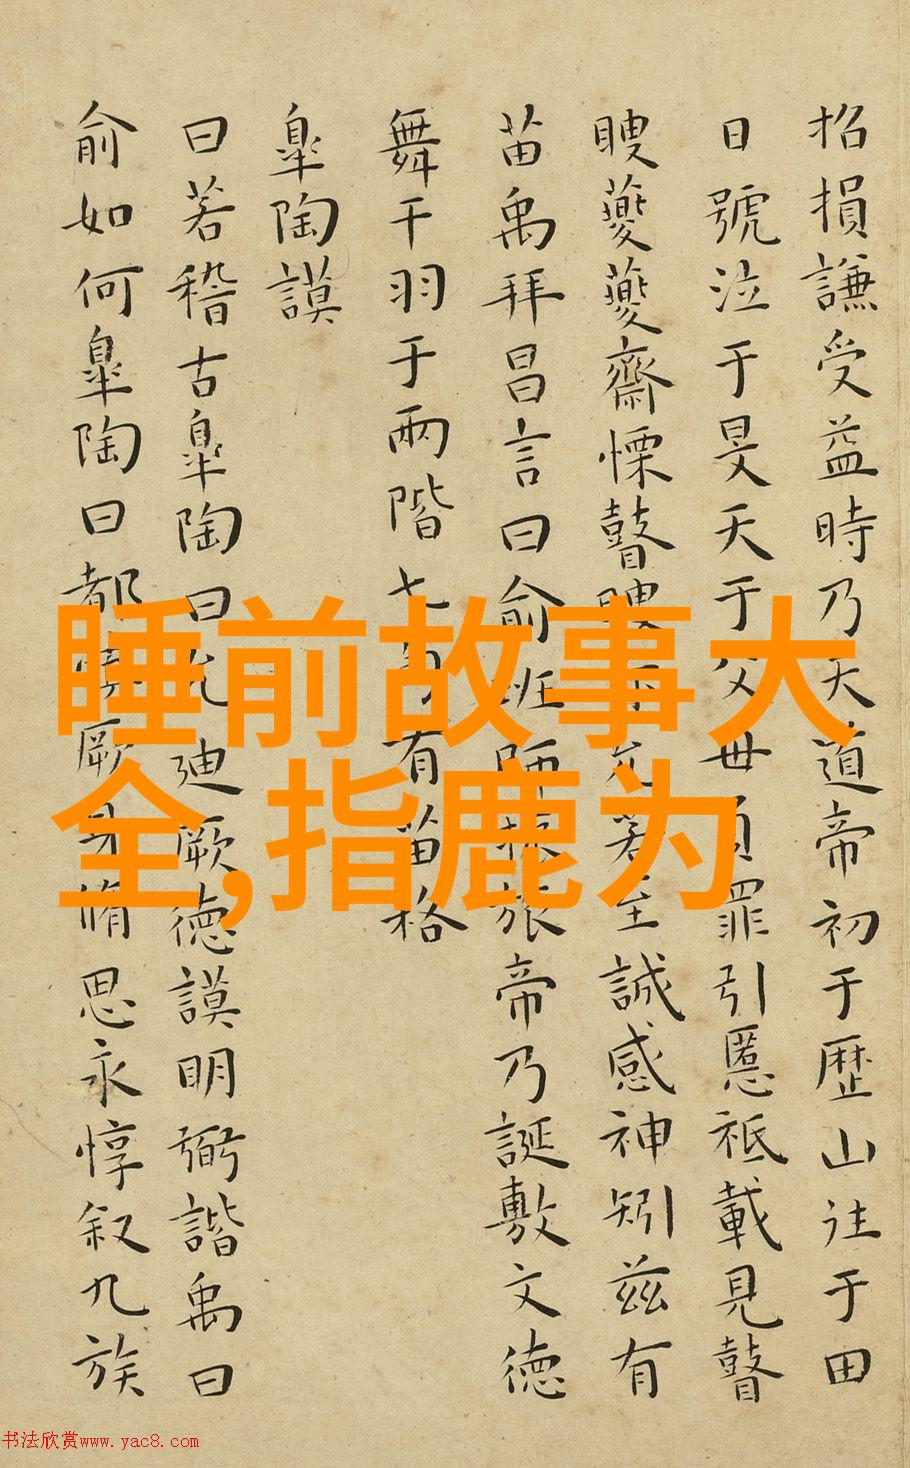 招損謙受益時乃天道帝初于歴山往于田
日號泣于旻天于父母負罪引慝祗載見瞽
瞍夔夔齋慄瞽瞍亦允若至誠感神矧茲有
苗禹拜昌言曰俞班師振旅帝乃誕敷文徳
舞干羽于兩階七旬有苗格
臯陶謨
曰若稽古臯陶曰允迪厥徳謨明弼諧禹曰
俞如何臯陶曰都慎厥身脩思永惇叙九族
睡前故事大
全,指鹿为
书法欣赏www.yac8.com